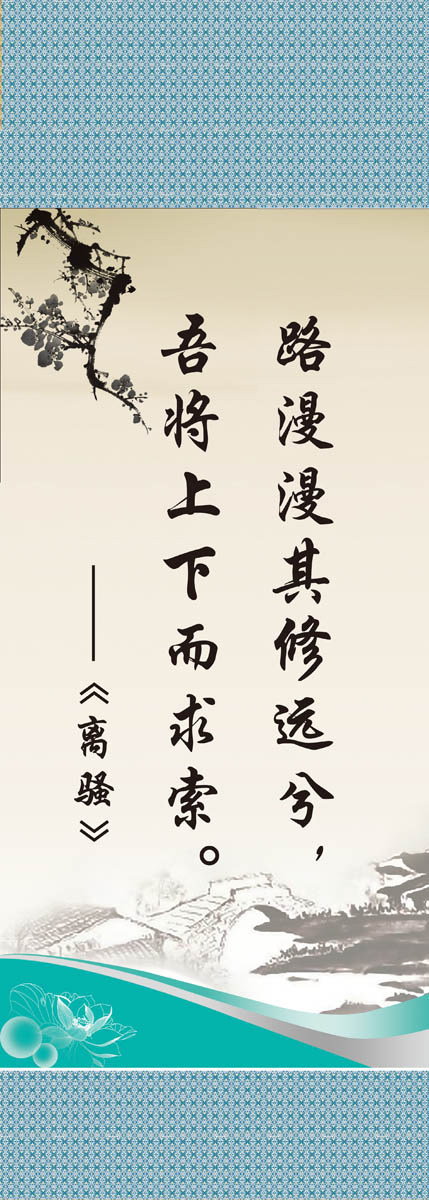 路漫漫其修远兮，
吾将上下而求索。
——《离骚》